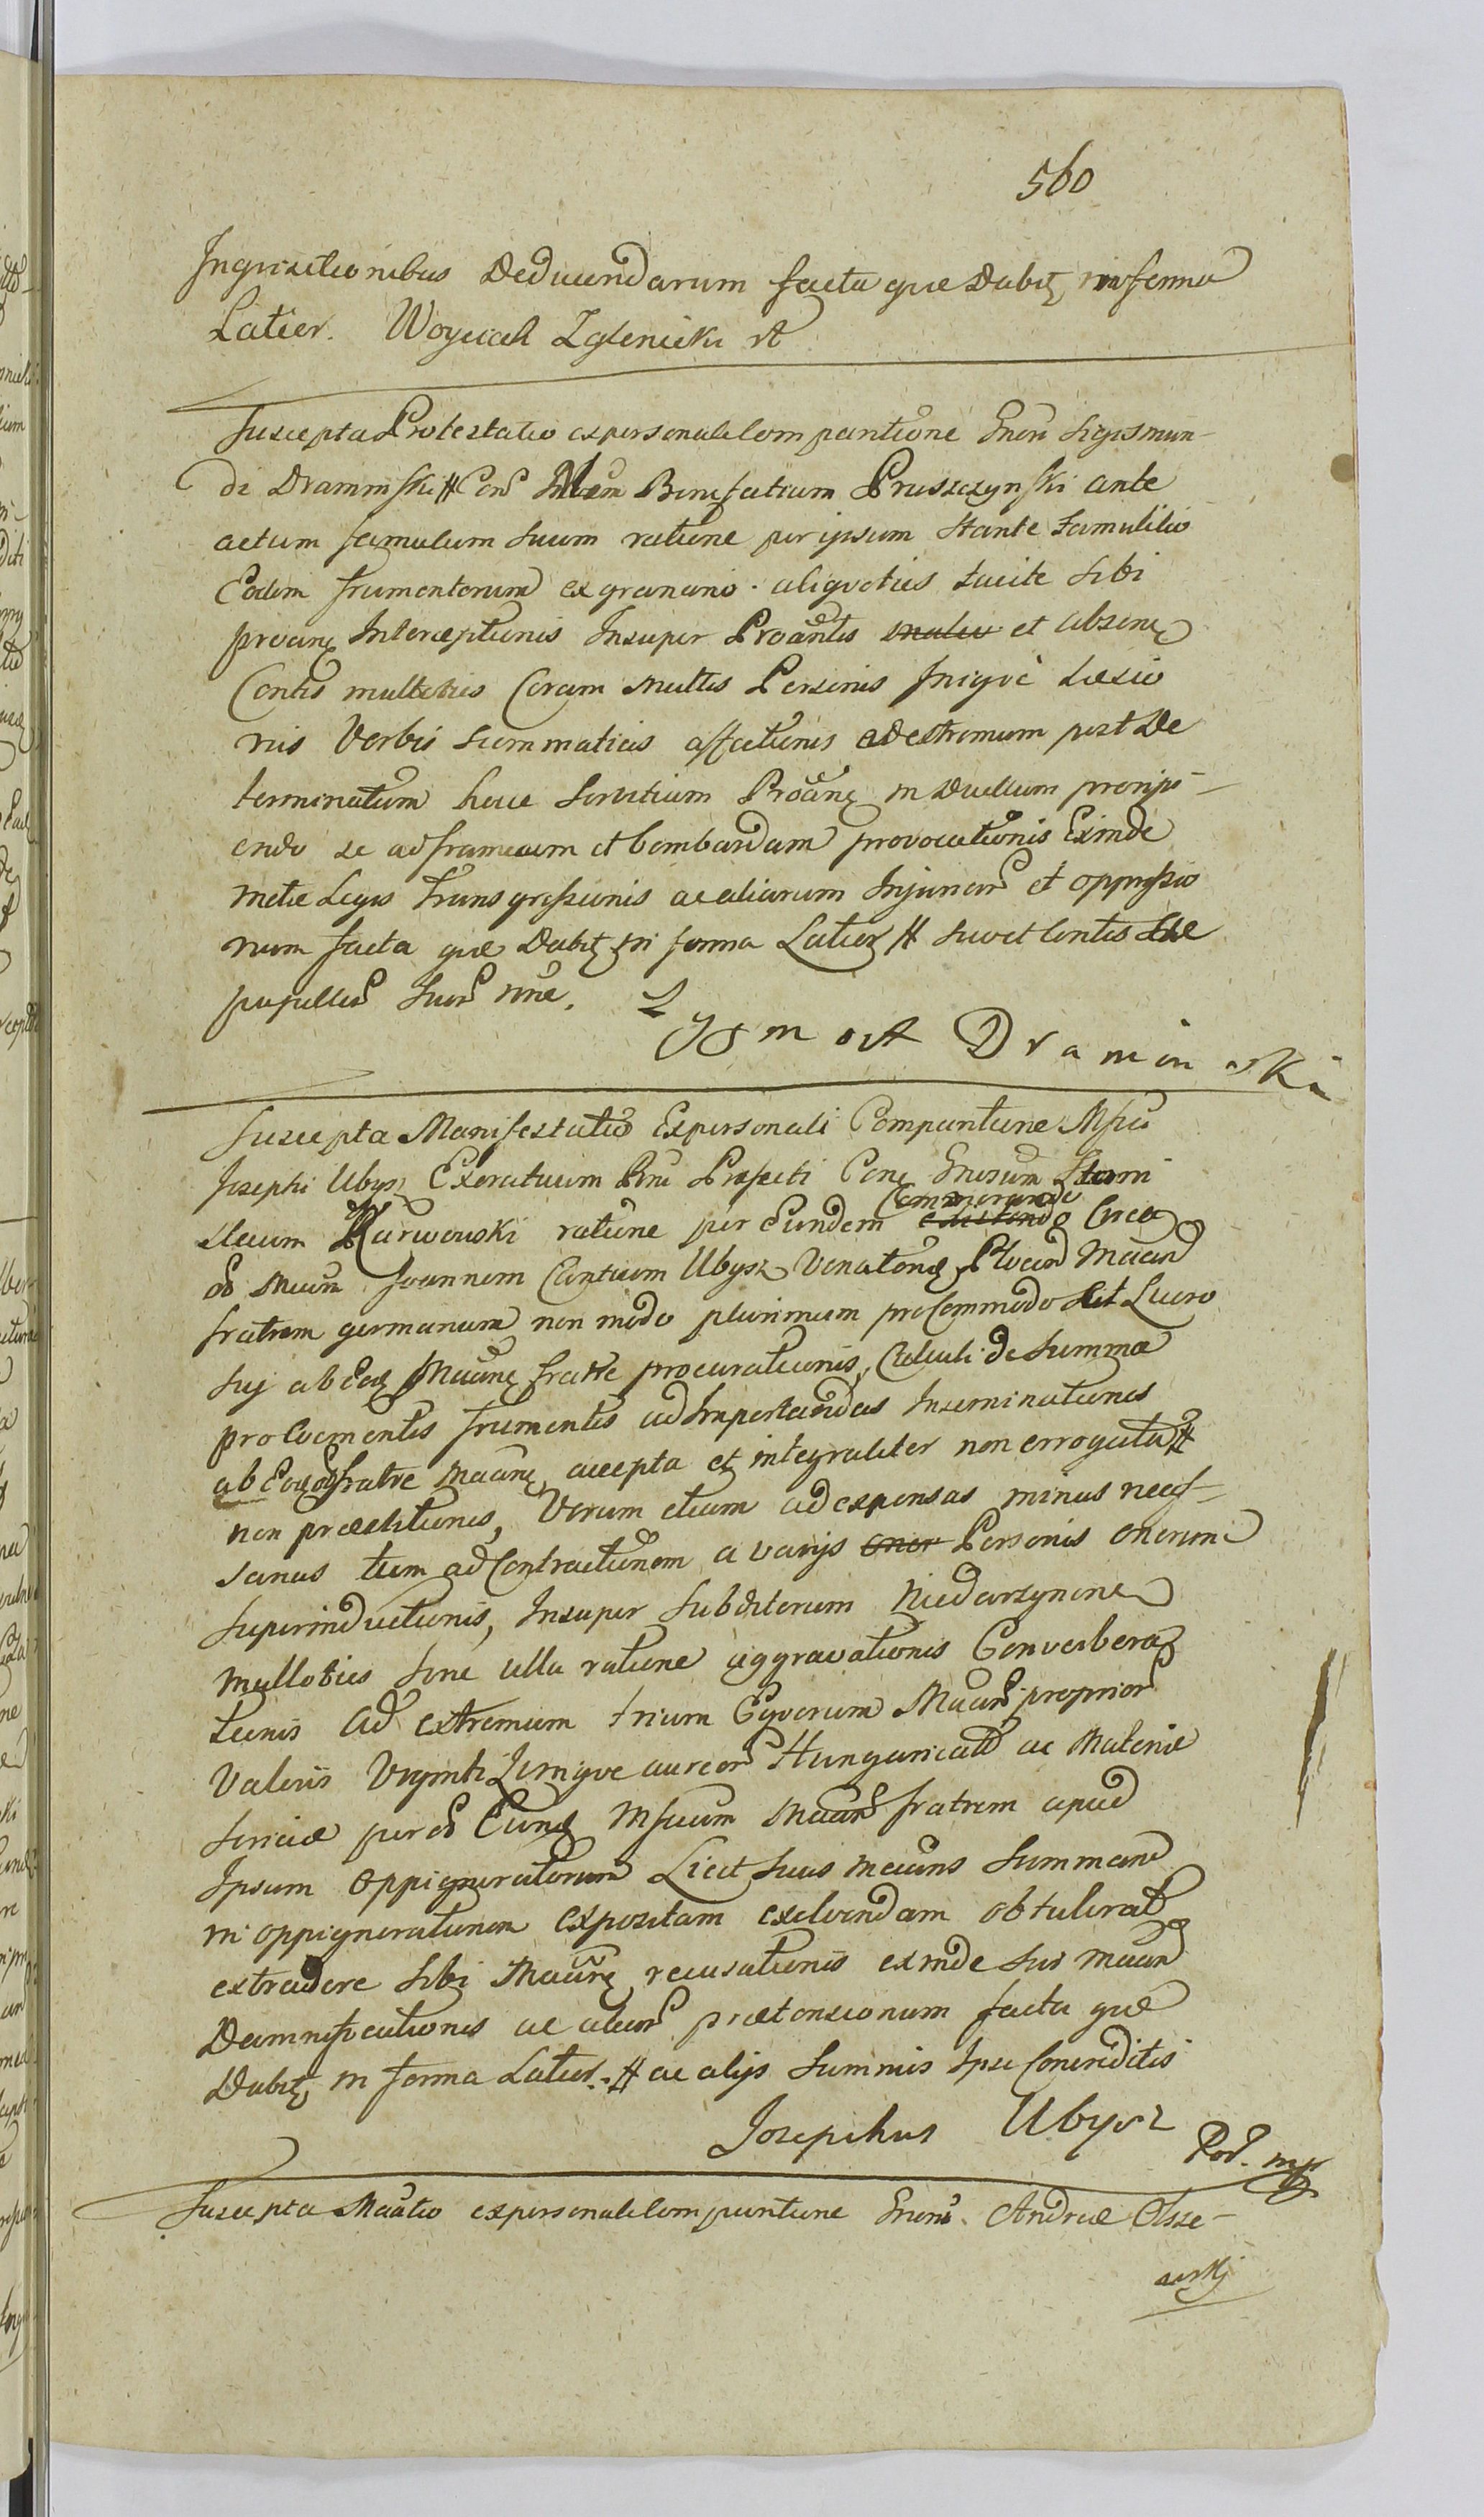 560
Inqvisitionibus Deducendarum facta que Dabit in forma
Latior. Woyciech Zglenicki
Suscepta Protestatio ex personali Compantione Gnosi Sigismun-
di Draminski # Con Bonifatium Pruszczynski ante
actum famulum suum ratione per ipsum stante famulitio
Eodem frumentorum ex granario aliqvoties tacite sibi
Interceptionis Insuper Proantis et absen
Contis multoties Coram multis Personis Iniqvè Læsio
nis Verbis summaticis affectionis ad extremum post De
terminatum hocce servitium Proane in Duellum proripi-
endo se ad frameam et bombardam provocationis Exinde
metæ Legis transgressionis ac aliarum Injuriar et oppressio
num facta que Dabit in forma Latior # suo et Contis suæ
pupillar suor nne.
Zygmont Draminski
Suscepta Manifestatio Ex personali Compantione Msici
Josephi Ubysz Exercituum Præfecti Gnosum Stani
sleum Karwowski ratione per Eundem Commorando Circa
Msicum Joannem Cantium Ubysz Venatorid Plocen Maan
fratrem germanum non modo plurimum pro Commodo set Lucro
suj ab Eod Maane fratre procurationis, Calculi de summa
pro Coemendis frumentis ad Impertandas Inseminationes
ab Eod fratre maane accepta et integraliter non errogata #
non prædditionis, Verum etiam ad expensas minus necess-
sarias tum ad Contractionem a varijs Personis onerum
superinductionis, Insuper subditorum Niedarzynen
multoties sine ulla ratione aggravationis Converbera
tionis Ad extremum trium Eqvorum Maan proprior
Valoris Viginti aureor Hungaricali ac Materiæ
sericiæ per Eund Msicum Maan fratrem apud
Ipsum oppigneratorum Licet suus maans summam
in oppignerationem expositam exolvendam obtulerat
extradere sibi Maane recusationis exinde sui maan
Damnificationis ac alior prætensionum facta que
Dabit in forma Latior. # ac alijs summis Ipsi Concreditis
Josephus Ubysz
mp
Suscepta Maatio ex personali Compantione Gnosi Andreæ Osse-